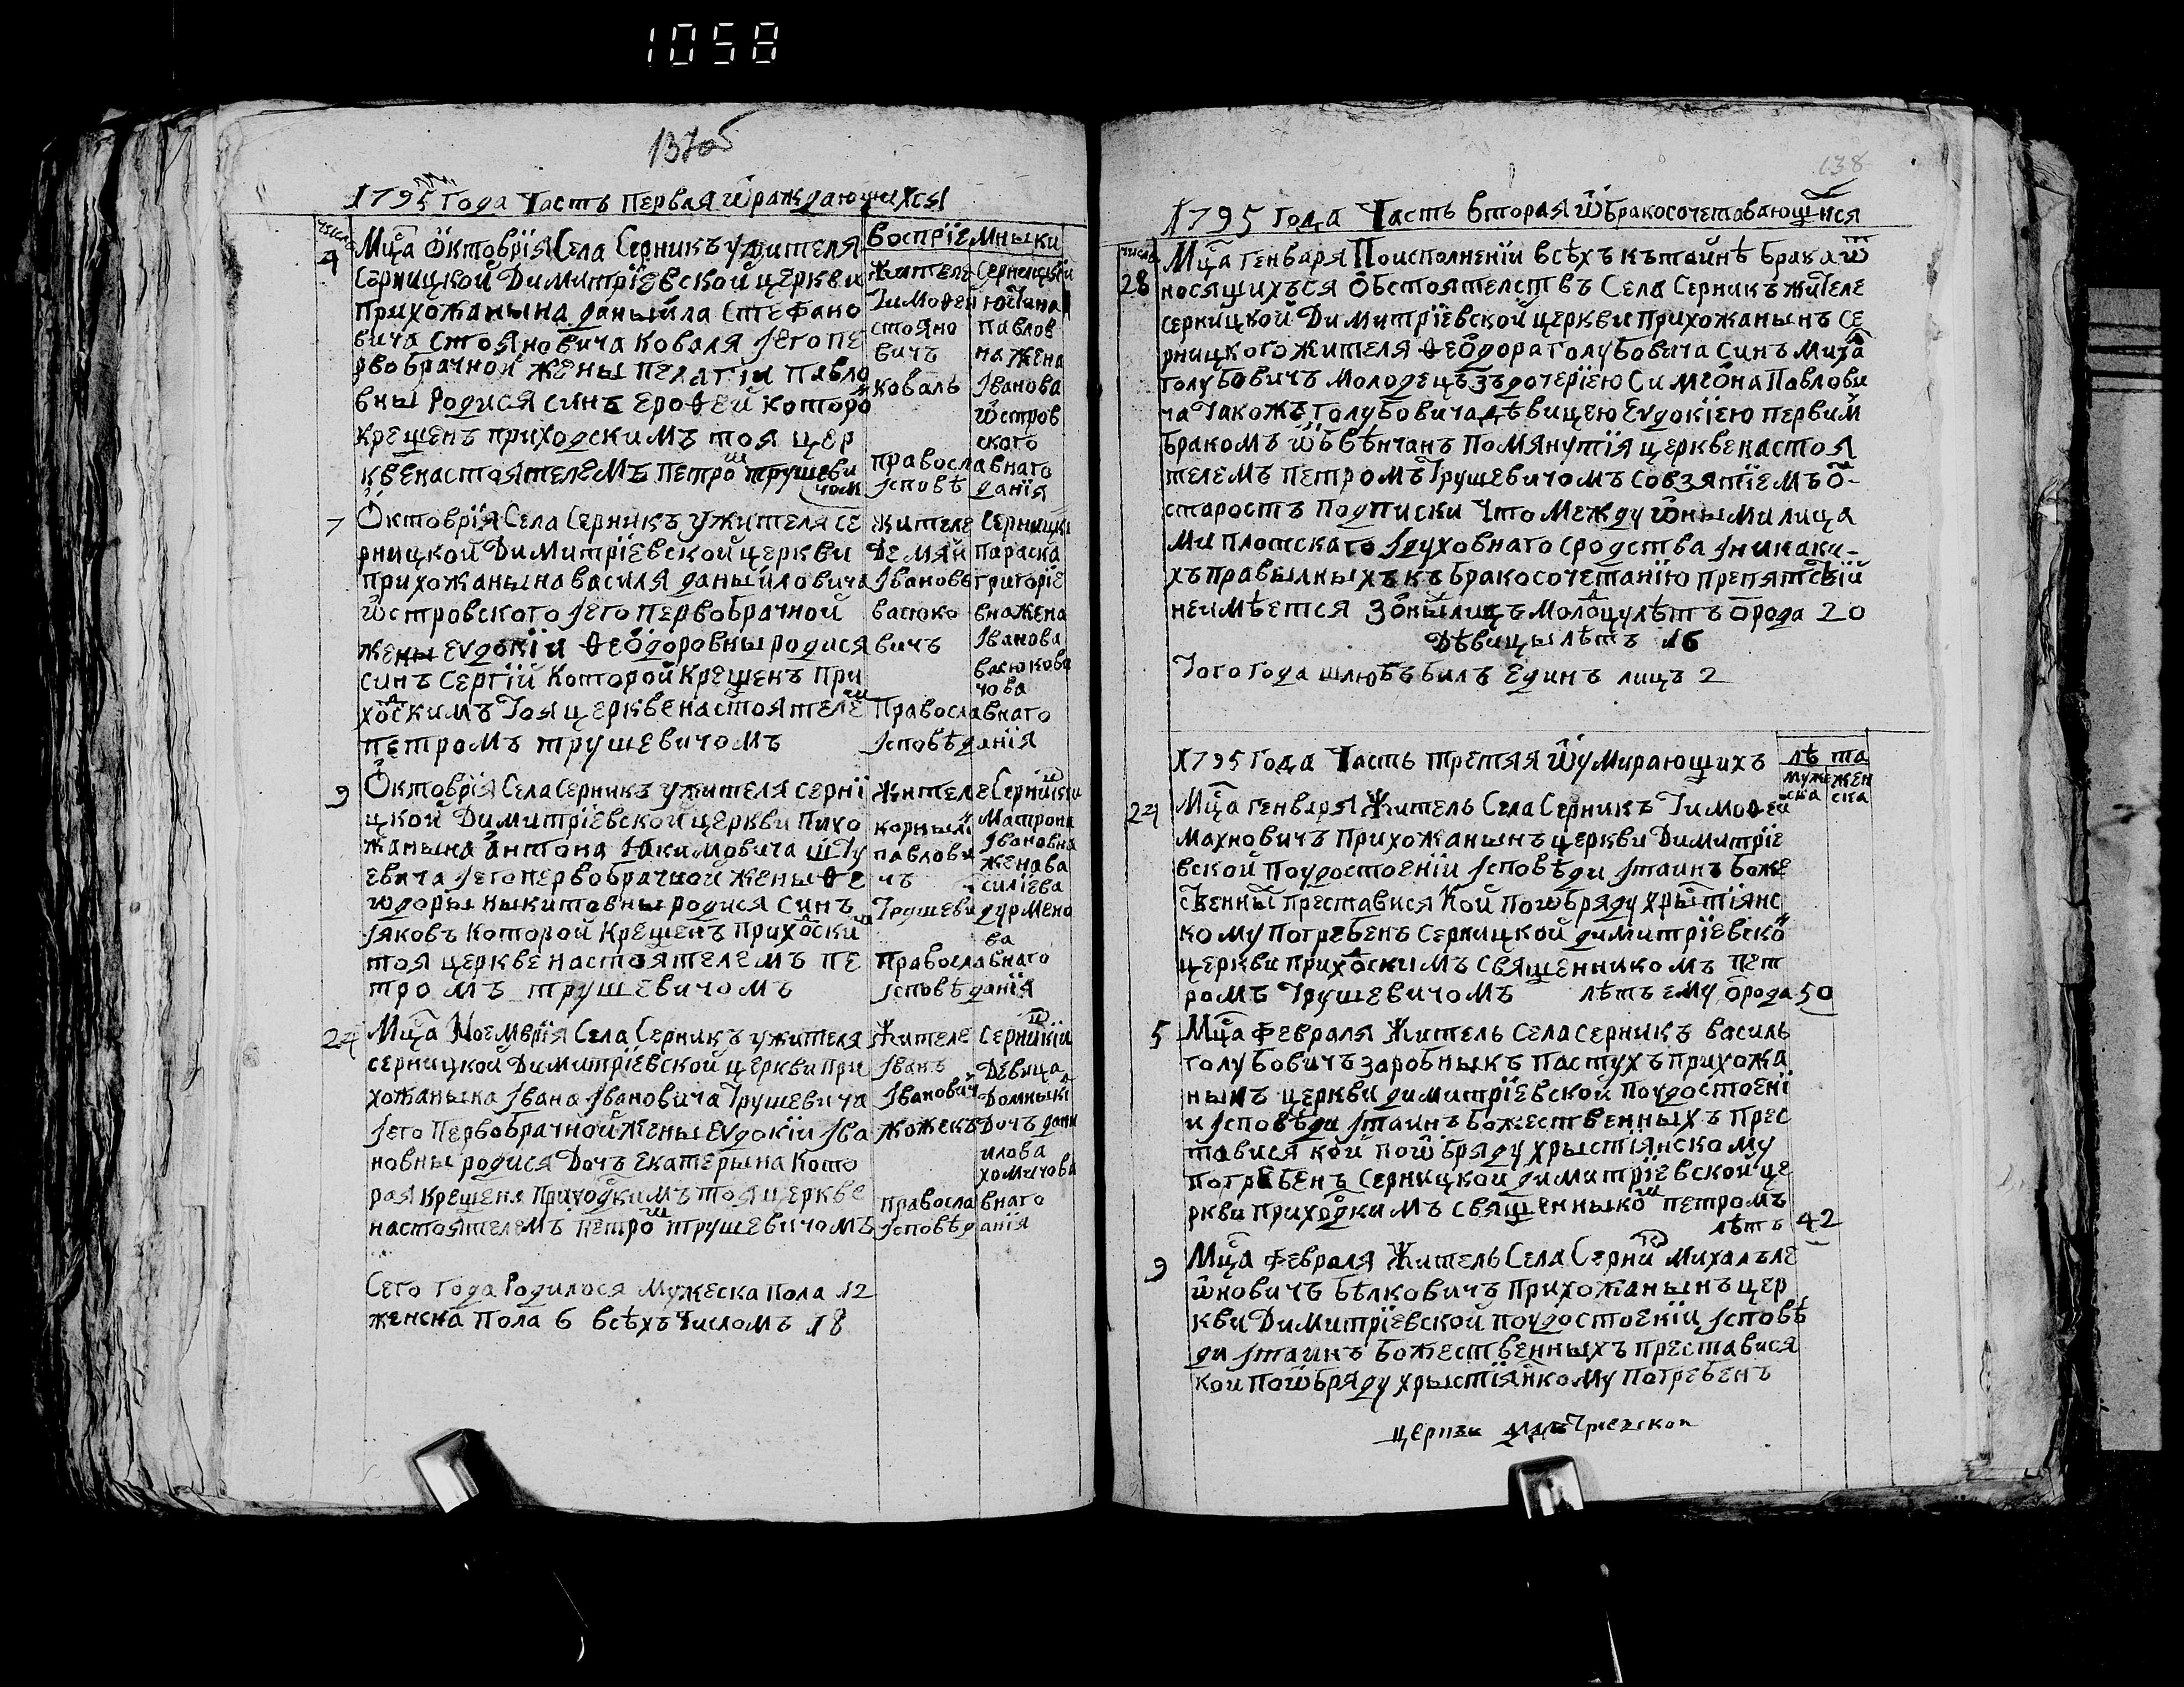 1058
137об
1795 Года Часть Первая ѿ раждающихся
число
Воспріемныки
4
Мц̃а Октоврїя Села Серникъ у жителя
Серницкой Димитрїевской церкви
прихожанына даныйла Стефано
вича Стояновича Коваля Jего пе
рвобрачной жены Пелагіи Павло
вны Родися синъ Ерофей которо
крещенъ приходскимъ тоя цер
кве настоятелемъ Петро трушеви
чом
Жителе Серницкіи
Тимофей Юстина
стояно Павлов
вичъ на жена
коваль Јванова
ѡстров
ского
православнаго
Јсповѣданїя
7
Октоврїя Села Серникъ у жителя се
рницкой Димитрїевской церкви
прихожанына василя даныйловича
ѡстровского Јего первобрачной
жены Еѵдокїи Ѳеодоровны родися
синъ Сергїй Которой Крещенъ При
хоскимъ Тоя церкве настоятеле
петромъ трушевичомъ
жителе Серницкі
Демян параска
Јвановъ григоріе
васюко вна жена
вичъ Јванова
васюкови
чова
Православнаго
Јсповѣданія
9
Октоврїя Села Серникъ у жителя серні
цкой Димитрїевской церкви пихо
жанына антона Якимовича шту
евича Јего первобрачной жены Ѳе
ѡдоры ныкитовны родися Синъ
Јяковъ Которой Крещенъ Прихоски
тоя церкве настоятелемъ пе
тромъ трушевичомъ
Жителе Серникіи
корныли Матрона
павлови Јвановна
чъ жена ва
силіева
Трушеви дурмено
ва
Православнаго
Јсповѣданїя
24
Мц̃а Ноемврїя Села Серникъ у жителя
серницкой Димитрїевской церкви при
хожаныка Јвана Јвановича Трушевича
Јего Первобрачной жены Еѵдокіи Јва
новны родися Дочъ Екатерына Кото
рая крещена Приходкимъ тоя церкве
настоятелемъ Петро трушевичомъ
Жителе Серникіи
Јванъ Девица
Јванович Домныкі
жожекъ Дочъ дани
илова
хомичова
православнаго
Јсповѣданїя
Сего Года Родилося Мужеска Пола 12
женска Пола 6 всѣхъ Числомъ 18
138
1795 Года Часть Вторая ѿ Бракосочетавающихся
число
28
Мц̃а Генваря По исполненїи всѣхъ къ тайнѣ брака ѿ
носящихъся Обстоятелствъ Села Серникъ жителе
серницкой Димитрїевской церкви Прихожанынъ се
рницкого жителя Ѳеодора голубовича синъ Миха
голубовичъ молодецъ зъ дочерїею Симеона Павлови
ча Такожъ голубовича дѣвицею Еѵдокїею первим
бракомъ ѡбвѣнчанъ Помянутїя церкве настоя
телемъ петромъ Трушевичомъ совзятїемъ о-
старостъ Подписки Что между ѡными лица
ми плотскаго Јдуховнаго сродства Јникаки-
хъ правылныхъ къ бракосочетанїю препятсвїй
неимѣется Зоныхъ лицъ Молоцу лѣтъ ѿрода 20
Дѣвицы лѣтъ 16
Того Года шлюбъ билъ Единъ лицъ 2
1795 Года Часть Третяя ѿ умирающихъ
лѣта
муже
ска
жен
ска
24
Мц̃а генваря Житель Села Серникъ Тимофей
Махновичъ Прихожанынъ церкви Димитріе
вской Поудостоенїи Јсповѣди Јтаинъ Боже
свенны Преставися Кой поѡбряду хрыстіянс
кому погребенъ Серницкой димитрїевско
церкви прихоскимъ священникомъ Пет
ромъ Трушевичомъ лѣтъ ему ѿрода 50
5
Мц̃а Февраля Житель Села Серникъ василь
голубовичъ заробныкъ пастухъ прихожа
нынъ церкви димитрїевской Поудостоені
и Јсповѣди Јтаинъ божественныхъ Прес
тавися кой поѡбряду хрыстіянскому
погребенъ Серницкой димитрїевской це
ркви приходкимъ священныко петромъ
лѣтъ 42
9
Мц̃а Февраля Житель Села Серни Михалъ ле
ѡновичъ Бѣлковичъ Прихожанынъ цер
кви Димитрїевской поудостоенїи Јсповѣ
ди Јтаинъ Божественныхъ преставися
кои поѡбряду хрыстїянкому погребенъ
церкви